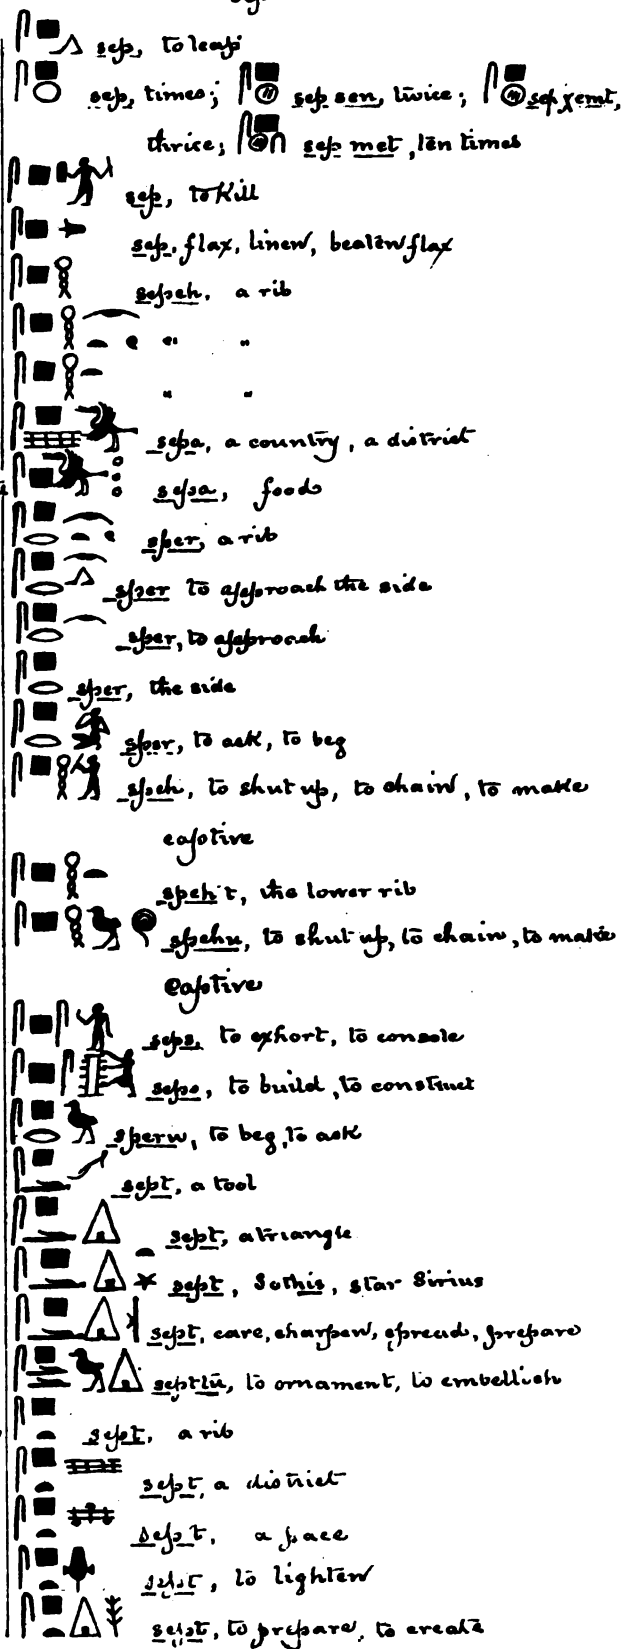 sep, to leap
sep, times; sep sen, twice; sep χemt,
thrice; sep met, ten times
sep, to Kill
sep, flax, linen, beaten flax
sepeh, a rib
" "
" "
sepa, a country, a district
sepa, food
sper, a rib
sper to approach the side
sper, to approach
sper, the side
sper, to ask, to beg
speh, to shut up, to chain, to make
captive
speh't, the lower rib
spehu, to shut up, to chain, to make
captive
seps, to exhort, to console
seps, to build, to construct
speru, to beg, to ask
sept, a tool
sept, a triangle
sept, Sothis, star Sirius
sept, care, sharpen, spread, prepare
septtu, to ornament, to embellish
sept, a rib
sept, a district
sept, a
sept, to lighten
sept, to prepare, to create